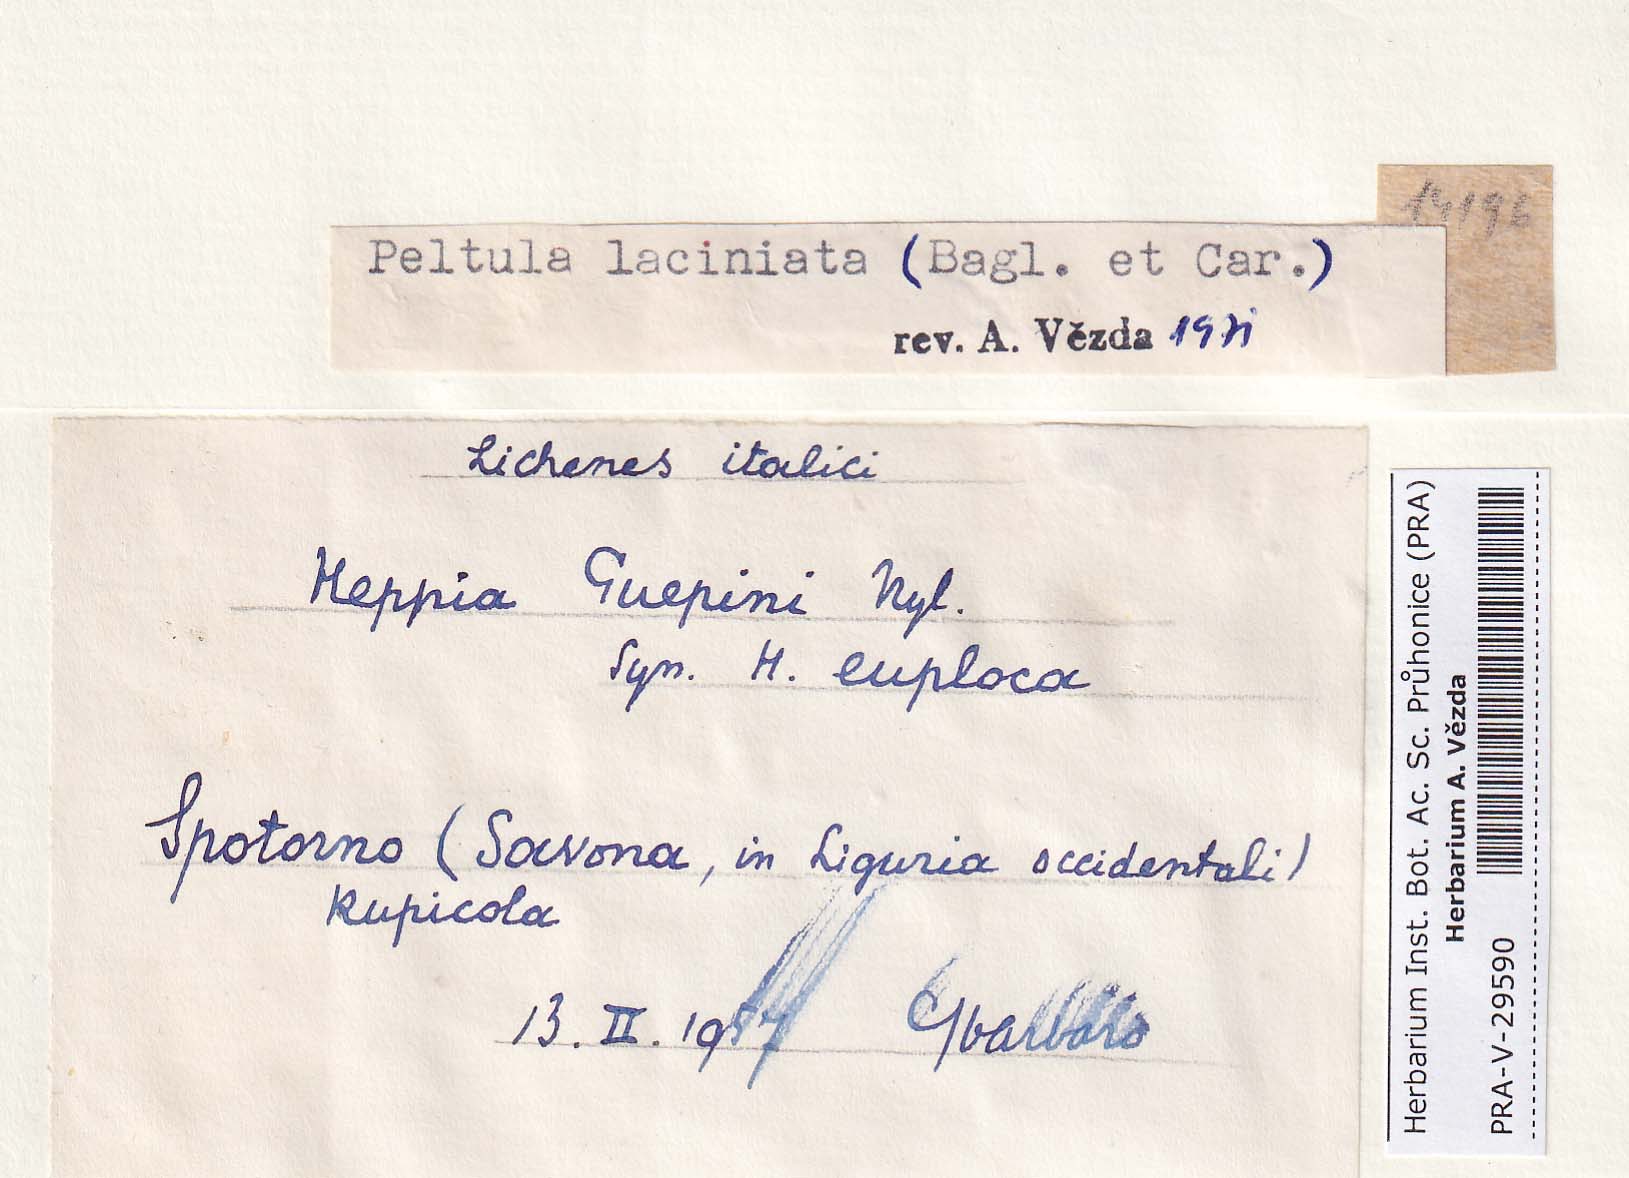 14196
Peltula laciniata (Bagl. et Car.)
rev. A. Vězda 1971
Lichenes italici
Heppia Guepini Nyl.
Syn. H. euploca
Spotorno (Savona, in Liguria occidentali)
Rupicola
13. II. 1957
Herbarium Inst. Bot. Ac. Sc. Průhonice (PRA)
Herbarium A. Vězda
PRA-V-29590